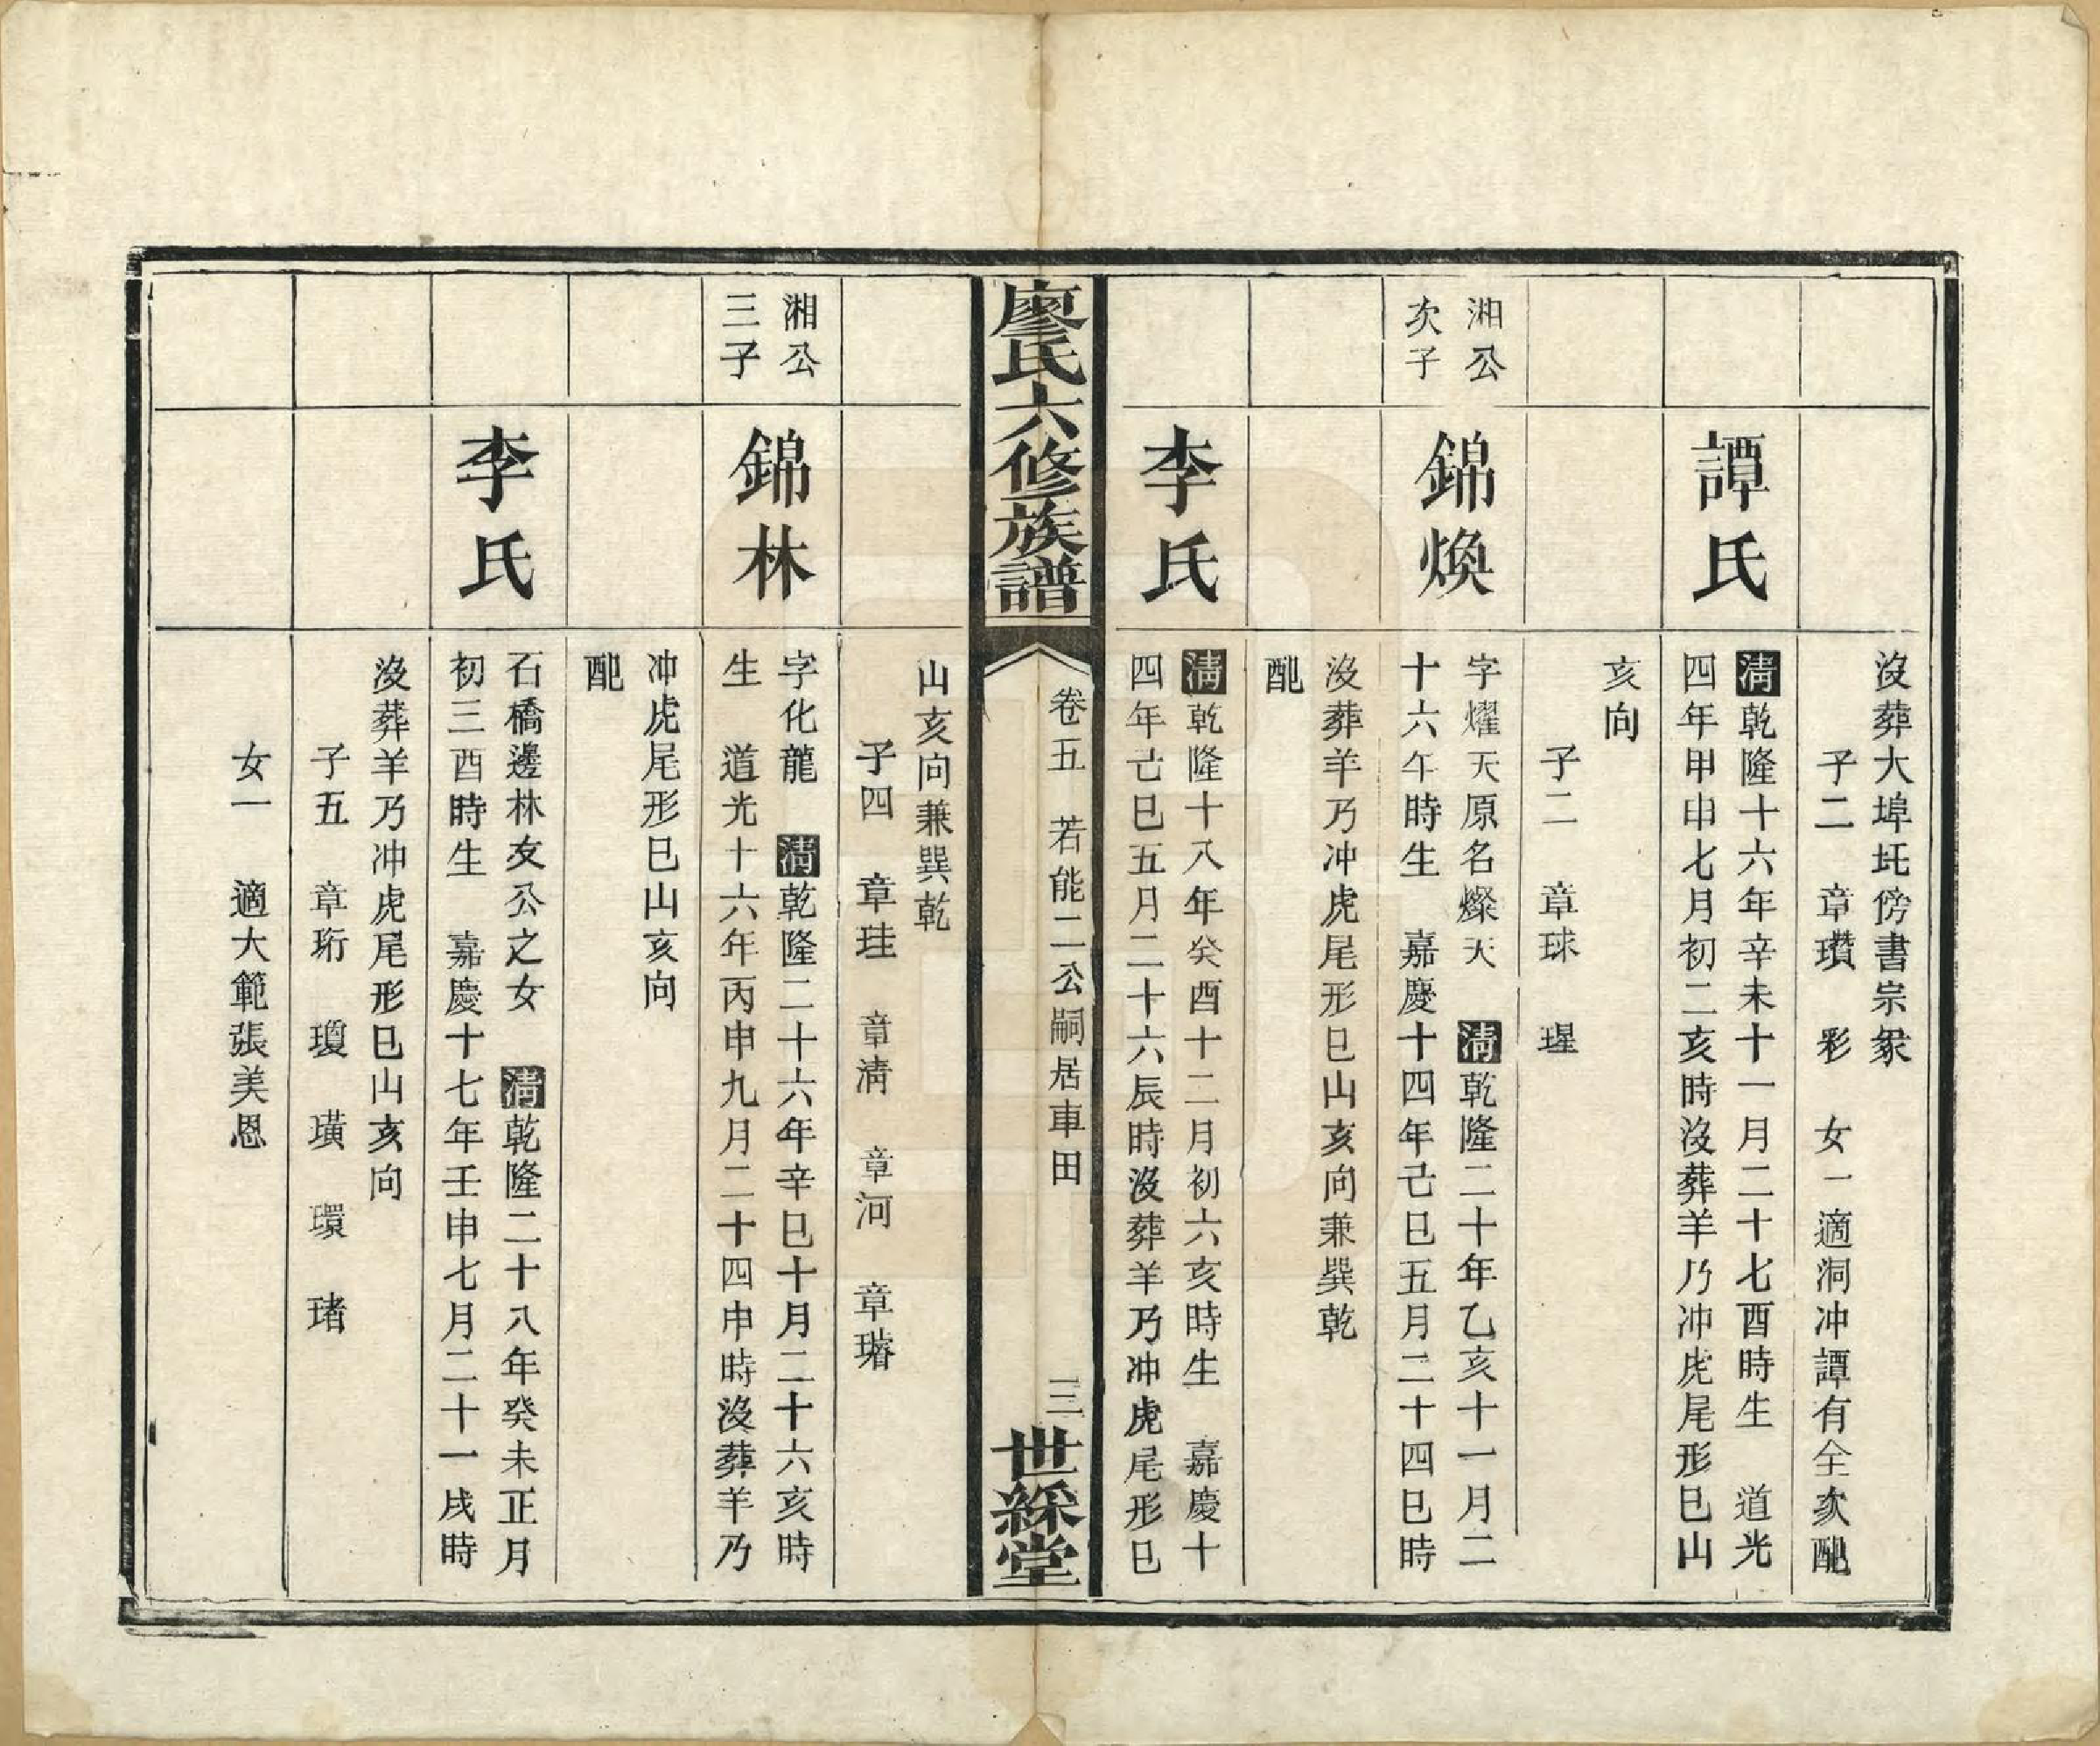 沒葬大埠坵傍書宗象
子二　章瓚　彩　女一適洞冲譚有全次配
譚氏
淸乾隆十六年辛未十一月二十七酉時生　道光
四年甲申七月初二亥時沒葬羊乃冲虎尾形巳山
亥向
子二　章球　瑆
湘公
次子
錦煥
字燿天原名燦天　淸乾隆二十年乙亥十一月二
十六午時生　嘉慶十四年己巳五月二十四巳時
沒葬羊乃冲虎尾形巳山亥向兼巽乾
配
李氏
淸乾隆十八年癸酉十二月初六亥時生　嘉慶十
四年己巳五月二十六辰時沒葬羊乃冲虎尾形巳
廖氏六修族譜
卷五　若能二公嗣居車田
三
世綵堂
山亥向兼巽乾
子四　章珪　章淸　章河　章璿
湘公
三子
錦林
字化龍　淸乾隆二十六年辛巳十月二十六亥時
生　道光十六年丙申九月二十四申時沒葬羊乃
冲虎尾形巳山亥向
配
李氏
石橋邊林友公之女　淸乾隆二十八年癸未正月
初三酉時生　嘉慶十七年壬申七月二十一戌時
沒葬羊乃冲虎尾形巳山亥向
子五　章珩　瓊　璜　環　瑃
女一　適大範張美恩